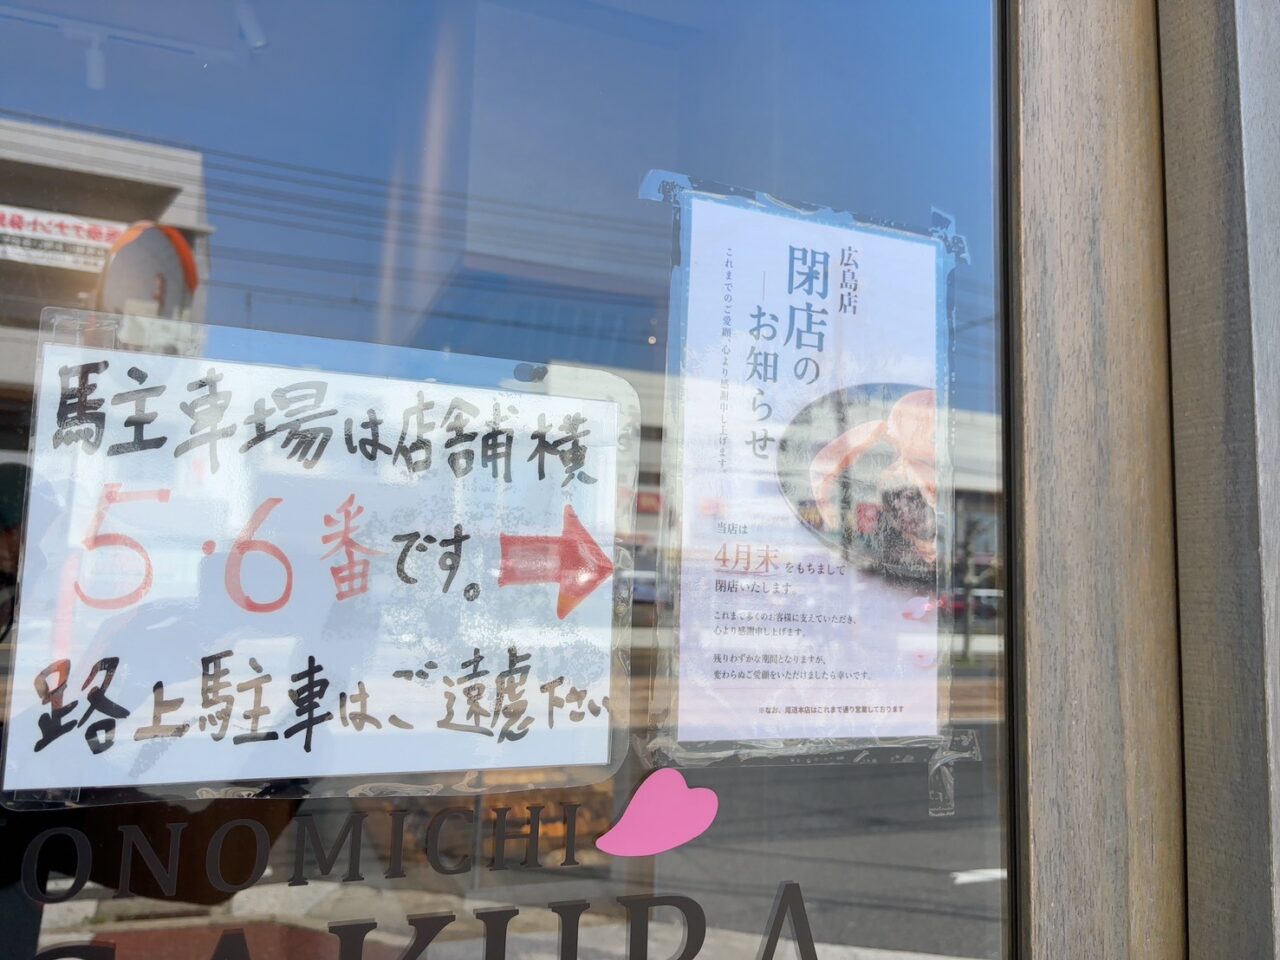 駐車場は店舗横
5・6番です。
路上駐車はご遠慮下さい
広島店
閉店の
お知らせ
これまでのご愛顧、心より感謝申し上げます。
当店は
4月末をもちまして
閉店いたします。
これまで多くのお客様に支えていただき、
心より感謝申し上げます。
残りわずかな期間となりますが、
変わらぬご愛顧をいただけましたら幸いです。
※なお、尾道本店はこれまで通り営業しております
ONOMICHI
SAKURA